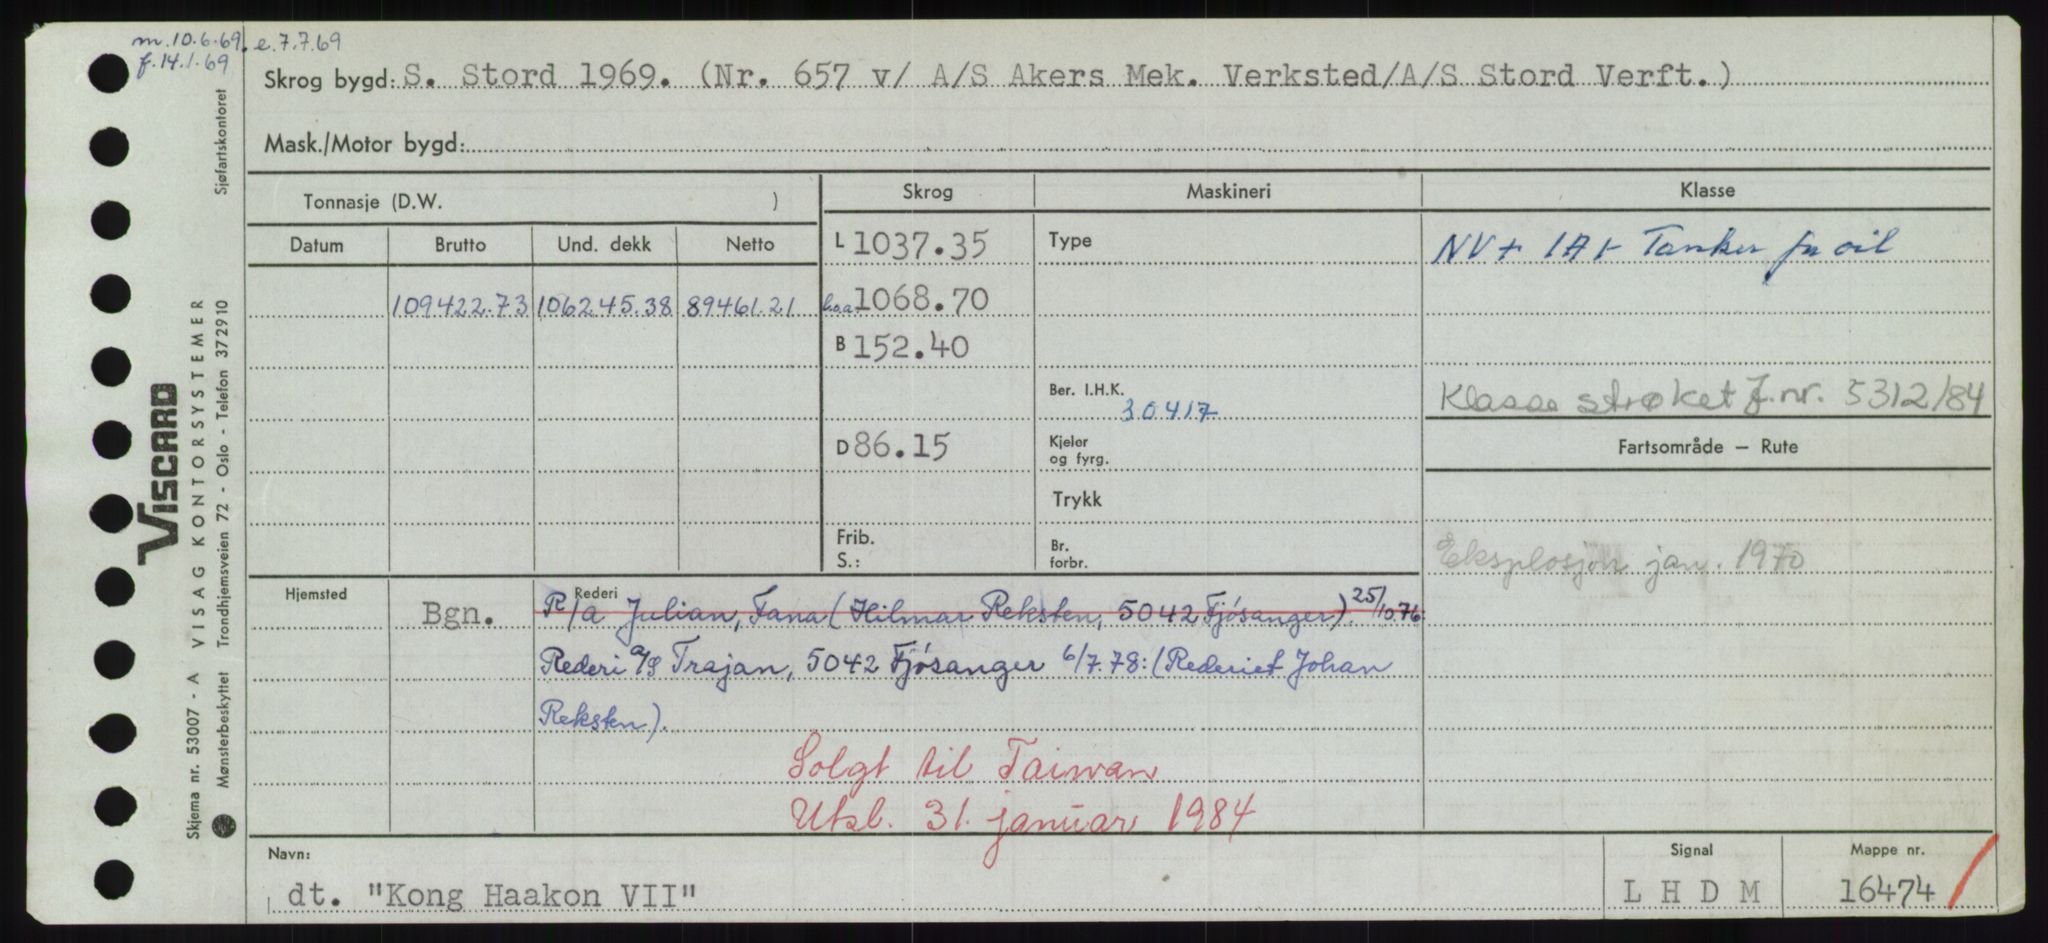 m. 10.6.69. e. 7.7.69
f. 14.1.69
Skrog bygd: S. Stord 1969. (Nr. 657 v/ A/S Akers Mek. Verksted/A/S Stord Verft.)
Mask./Motor bygd:
Tonnasje (D.W. )
Skrog
Maskineri
Klasse
Datum
Brutto
Und. dekk
Netto
L 1037.35
Type
NV + 1A1 - Tanker for oil
109422.73
106245.38
89461.21
l.o.a. 1068.70
B 152.40
Ber. I.H.K.
30417
Klasse strøket J.nr. 5312/84
D 86.15
Kjeler
og fyrg.
Fartsområde — Rute
Trykk
Frib.
S.:
Br.
forbr.
Eksplosjon jan. 1970
Hjemsted
Bgn.
Rederi
R/a Julian, Fana (Hilmar Reksten, 5042 Fjøsanger). 25/10.76
Rederi a/s Trajan, 5042 Fjøsanger 6/7.78: (Rederiet Johan
Reksten).
Solgt til Taiwan
Utsl. 31. januar 1984
Navn:
dt. "Kong Haakon VII"
Signal
L H D M
Mappe nr.
16474
VISCARD
VISAG KONTORSYSTEMER
Skjema nr. 53007 - A
Mønsterbeskyttet
Trondhjemsveien 72 - Oslo - Telefon 372910
Sjøfartskontoret